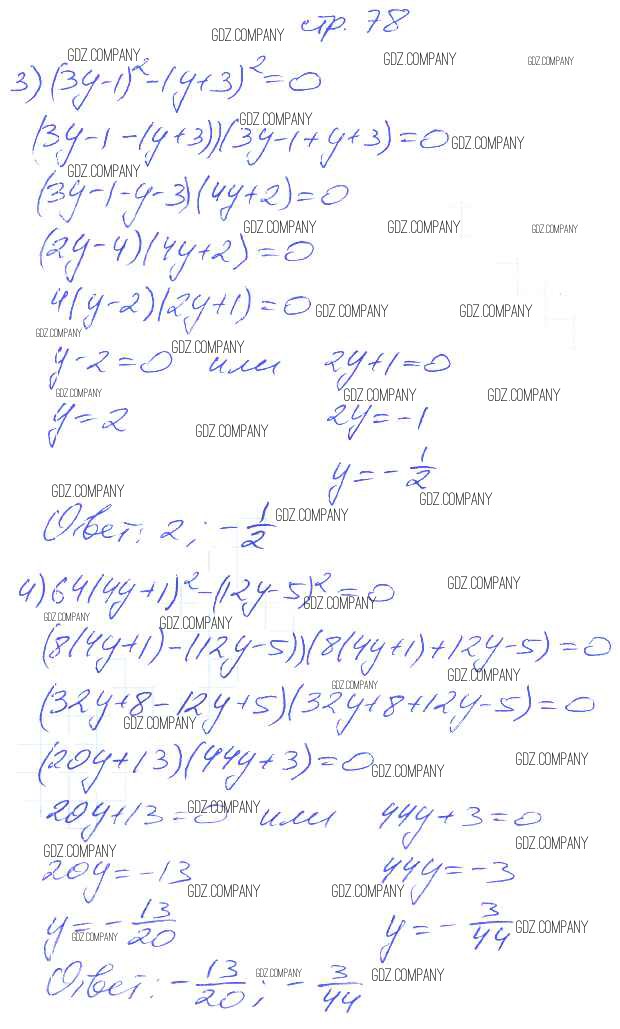 стр. 78
3) (3y-1)²-(y+3)²=0
(3y-1-(y+3))(3y-1+y+3)=0
(3y-1-y-3)(4y+2)=0
(2y-4)(4y+2)=0
4(y-2)(2y+1)=0
y-2=0 или 2y+1=0
y=2 2y=-1
y=-1/2
Ответ: 2; -1/2
4) 64(4y+1)²-(12y-5)²=0
(8(4y+1)-(12y-5))(8(4y+1)+12y-5)=0
(32y+8-12y+5)(32y+8+12y-5)=0
(20y+13)(44y+3)=0
20y+13=0 или 44y+3=0
20y=-13 44y=-3
y=-13/20 y=-3/44
Ответ: -13/20; -3/44
GDZ.COMPANY